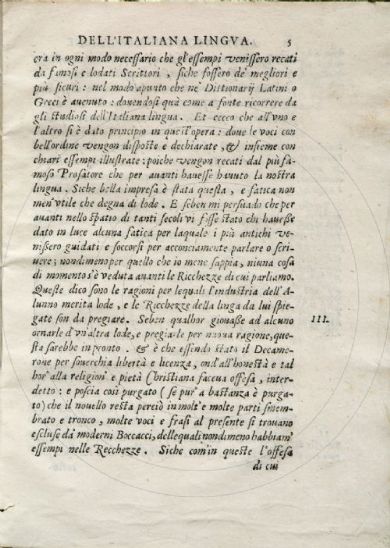 DELL'ITALIANA LINGVA. 5
era in ogni modo necessario che gl'essempi venissero recati
da famosi e lodati Scrittori, siche fossero de' megliori e
più sicuri: nel modo apunto che ne' Dittionarij Latini o
Greci è auenuto: douendosi quà come a fonte ricorrere da
gli studiosi dell'Italiana lingua. Et eccco che all'vno e
l'altro si è dato principio in quest'opera: doue le voci con
bell'ordine vengon disposte e dechiarate, & insieme con
chiari essempi illustrate: poiche vengon recati dal più fa-
moso Prosatore che per auanti hauesse hauuto la nostra
lingua. Siche bella impresa è stata questa, e fatica non
men'vtile che degna di lode. E seben mi persuado che per
auanti nello spatio di tanti secoli vi fosse stato chi hauesse
dato in luce alcuna fatica per laquale i più antichi ve-
nissero guidati e soccorsi per acconciamente parlare o scri-
uere; nondimeno per quello che io mene sappia, niuna cosa
di momento s'è veduta auanti le Ricchezze di cui parliamo.
Queste dico sono le ragioni per lequali l'industria dell'A-
lunno merita lode, e le Ricchezze della lingua da lui spie-
gate son da pregiare. Seben qualhor giouasse ad alcuno
ornarle d'vn'altra lode, e pregiarle per nuoua ragione, que-
sta sarebbe in pronto. & è che essendo stato il Decame-
rone per souerchia libertà e licenza, ond'all'honestà e tal
hor'alla religion' e pietà Christiana faceua offesa, inter-
detto: e poscia così purgato ( se pur' a bastanza è purga-
to) che il nouello resta perciò in molt'e molte parti smemb-
rato e tronco, molte voci e frasi al presente si trouano
escluse da' moderni Boccacci, dellequali nondimeno habbiam'
essempi nelle Recchezze. Siche com'in queste l'offesa
di cui
III.